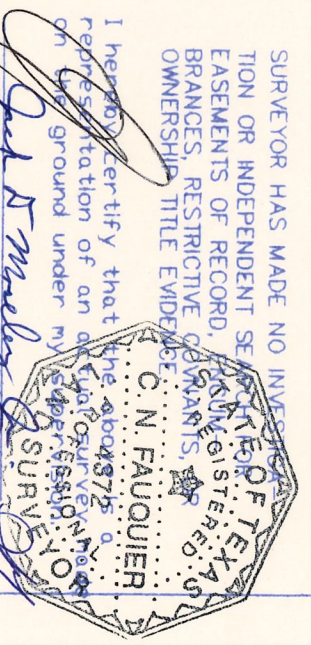 SURVEYOR HAS MADE NO INVESTIGA-
TION OR INDEPENDENT SEARCH FOR
EASEMENTS OF RECORD,
BRANCES, RESTRICTIVE COVENANTS,
OWNERSHIP TITLE EVIDENCE
I hereby certify that the above is a
representation of an actual survey made
on the ground under my supervision.
STATE OF TEXAS
REGISTERED
C. N. FAUQUIER
4372
PROFESSIONAL
LAND SURVEYOR